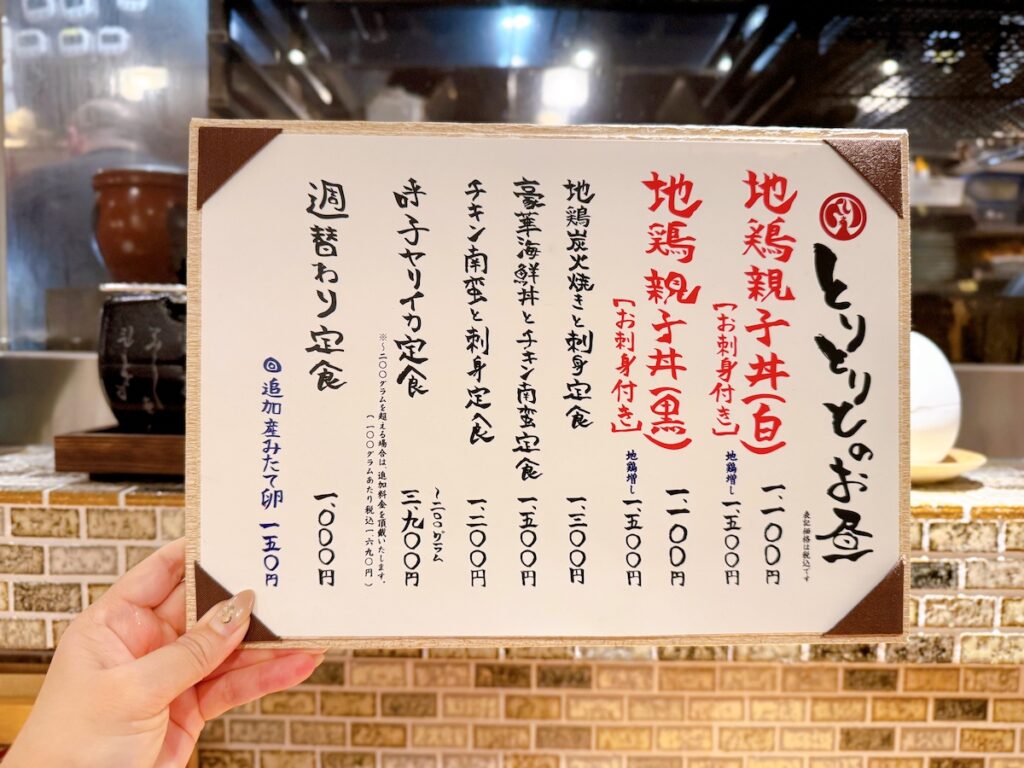 とりとりとのお昼
表記価格は税込です
地鶏親子丼(白) 一、一〇〇円
[お刺身付き] 地鶏増し 一、五〇〇円
地鶏親子丼(黒) 一、一〇〇円
[お刺身付き] 地鶏増し 一、五〇〇円
地鶏炭火焼きと刺身定食 一、三〇〇円
豪華海鮮丼とチキン南蛮定食 一、五〇〇円
チキン南蛮と刺身定食 一、二〇〇円
呼子ヤリイカ定食 〜二〇〇グラム 三、九〇〇円
※〜二〇〇グラムを超える場合は、追加料金を頂戴いたします。
(一〇〇グラムあたり税込一、六九〇円)
週替わり定食 一、〇〇〇円
◎追加産みたて卵 一五〇円